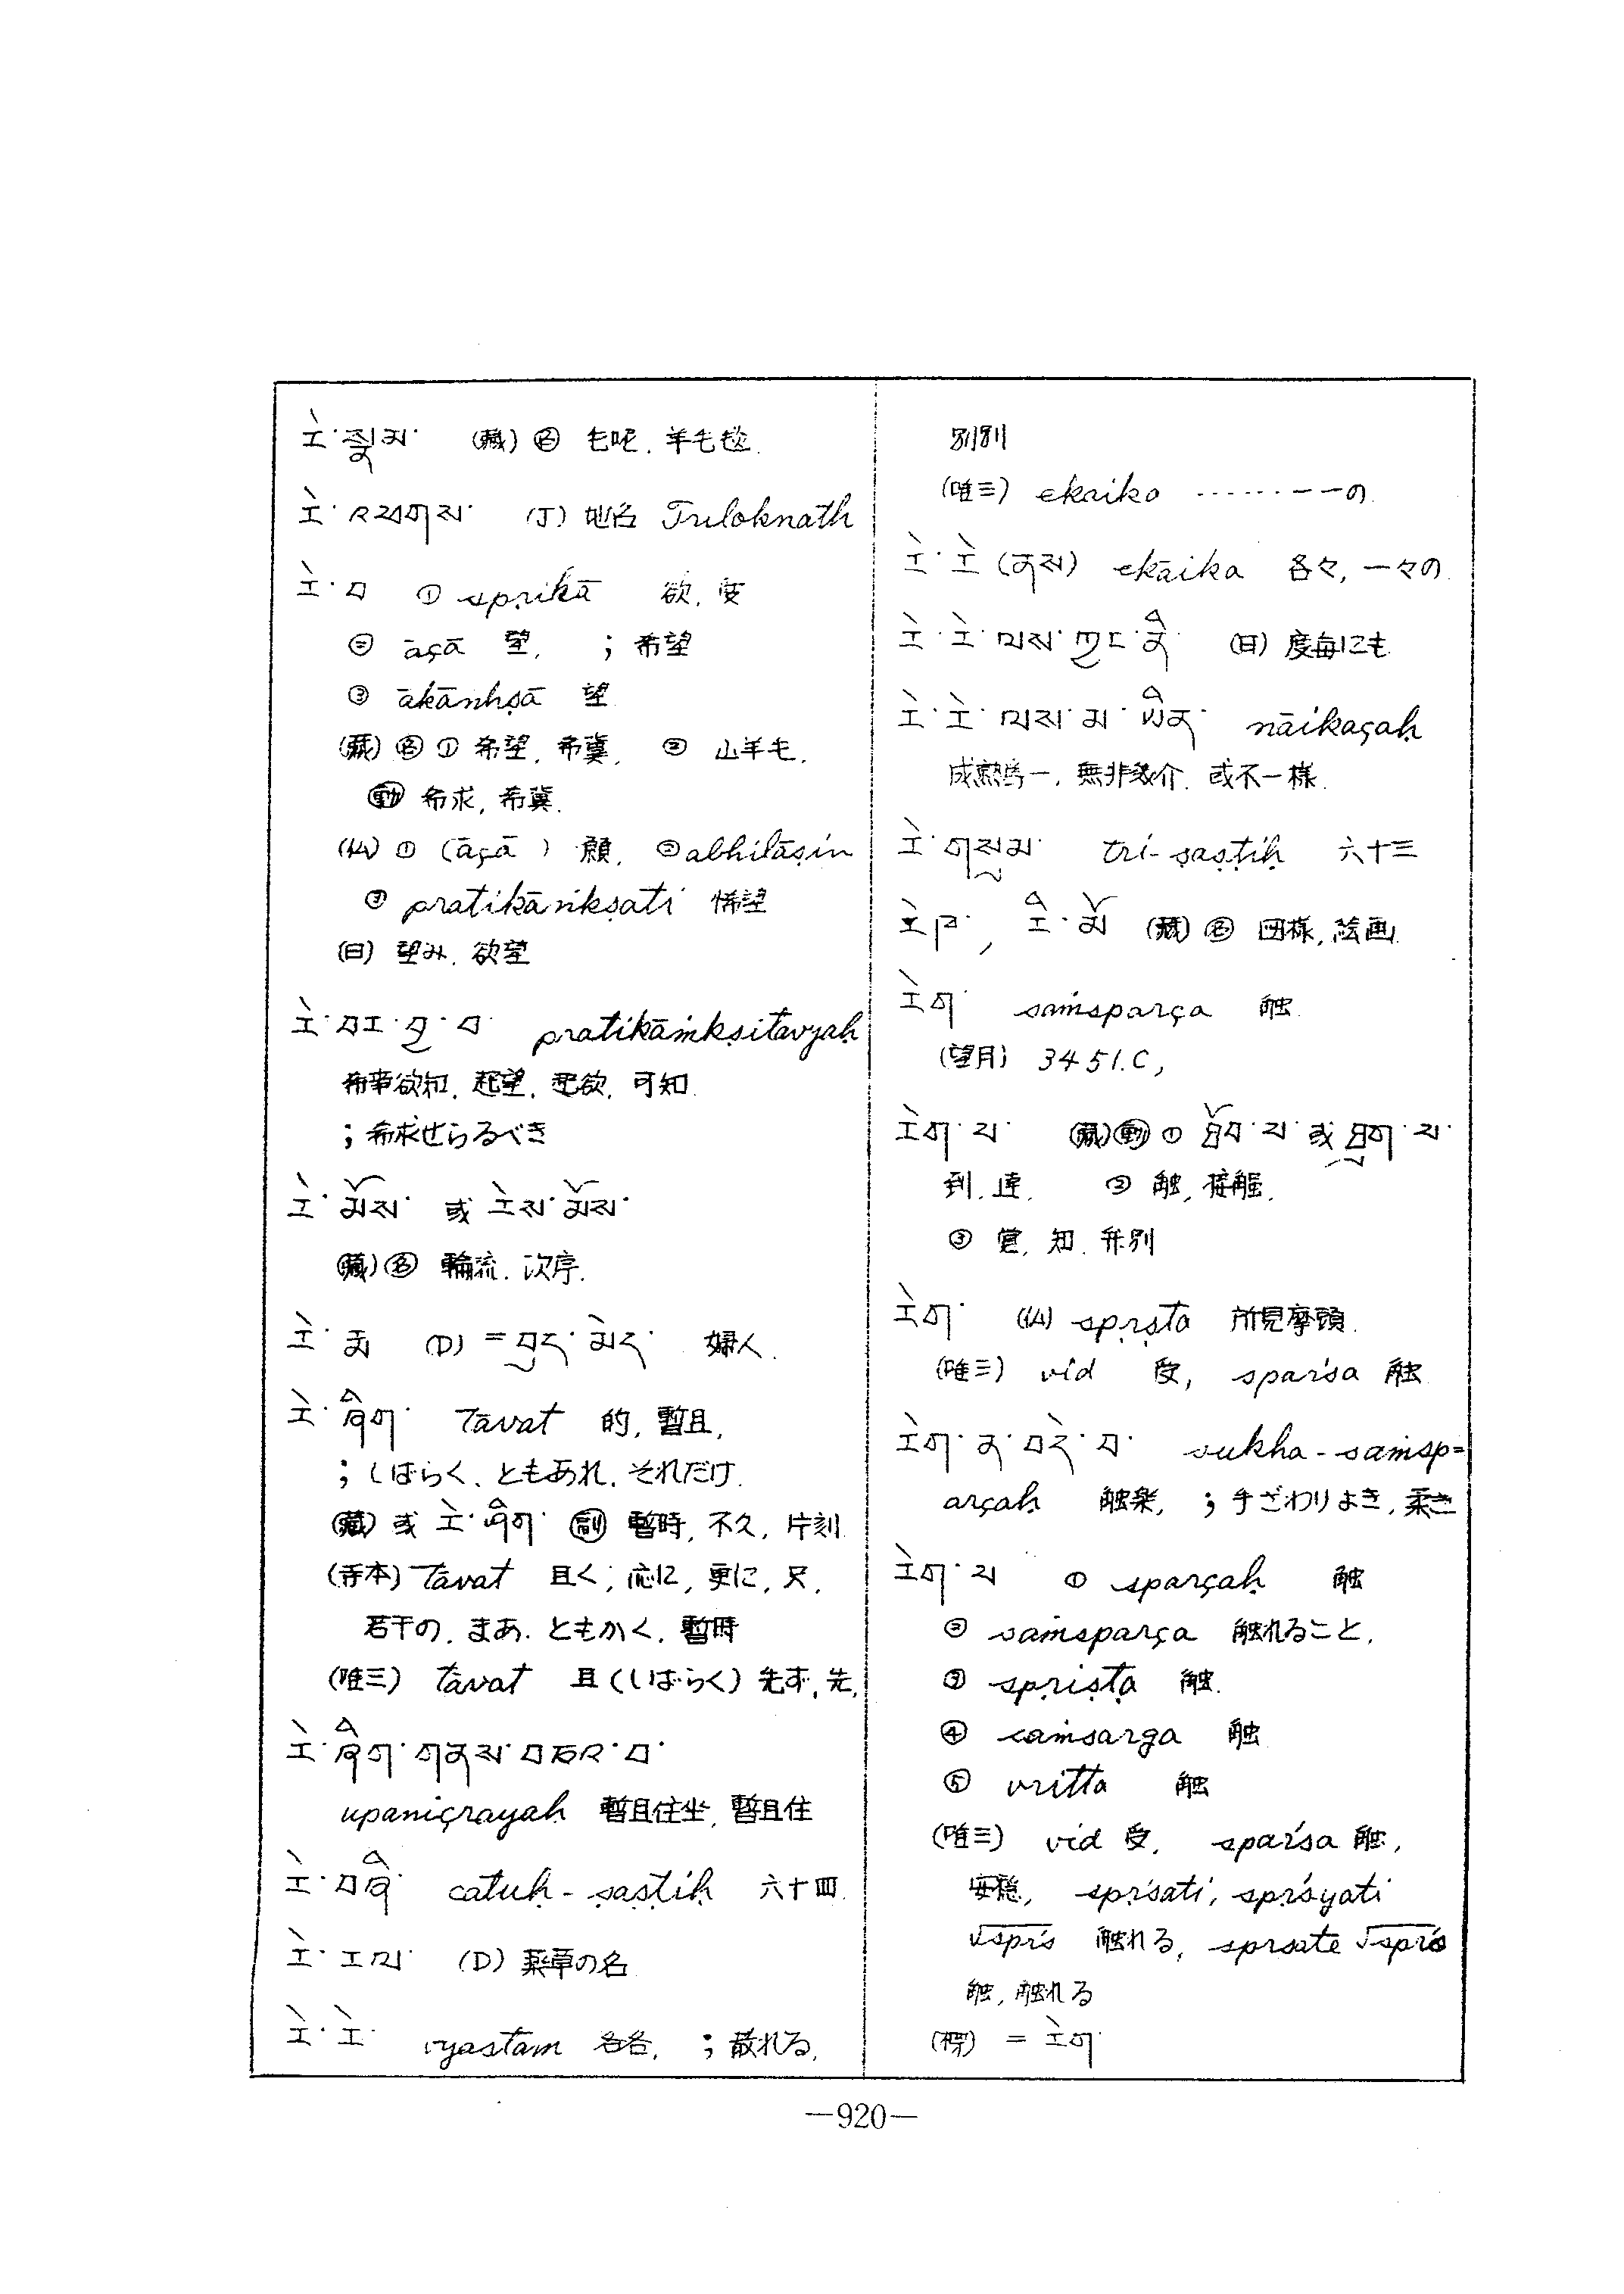 རེ་སྣམ་ (藏) 名 毛呢. 羊毛毯.
རེ་འཕགས་ (J) 地名 Triloknath
རེ་བ ① spṛikā 欲, 度
② āçā 望, ; 希望
③ ākānhṣā 望
(藏) 名 ① 希望, 希冀, ② 山羊毛,
動 希求, 希冀.
(仏) ① (āçā) 願, ② abhilāṣin
③ pratikāṅkṣati 悕望
(日) 望み, 欲望
རེ་བར་བྱ་བ་ pratikāṁkṣitavyaḥ
; 希求せらるべき
རེ་མོས་ 或 རེས་མོས་
(藏) 名 輪流. 次序.
(D) = བུད་མེད་ 婦人.
རེ་ཞིག་ Tāvat 的, 暫且,
; しばらく, ともあれ, それだけ.
(藏) 或 རེ་ཤིག་ 副 暫時, 不久, 片刻
(寺本) Tāvat 且く; 応に, 更に, 只,
若干の, まあ. ともかく, 暫時
(唯三) tāvat 且 (しばらく) 先ず, 先,
རེ་ཞིག་གནས་བཅའ་བ་
upaniçrayaḥ 暫且住坐, 暫且住
རེ་བཞི་ catuḥ-ṣaṣṭiḥ 六十四.
རེ་རལ་ (D) 薬草の名
རེ་རེ་ vyastam 各各, ; 散れる,
別別
(唯三) ekaiko ……… 一一の
རེ་རེ་(ནས) ekāika 各々, 一々の
རེ་རེ་ལས་ཀྱང་ནི་ (日) 度毎にも
རེ་རེ་ལས་མ་ཡིན་ nāikaçaḥ
成熟等一, 無非幾介, 或不一様.
རེ་གསུམ་ tri-ṣaṣṭiḥ 六十三
རེཁ་, རི་མོ (藏) 名 図様, 絵画
རེག་ saṁsparça 触
(望月) 3451.C,
རེག་པ་ (藏) 動 ① 或
到. 達. ② 触, 接触,
③ 覚, 知. 弁別
རེག་ (仏) spṛṣta 所見摩頭.
(唯三) vid 受, sparśa 触
རེག་ན་བདེ་བ་ sukha-saṁsp=
arçaḥ 触楽, ; 手ざわりよき, 柔き
རེག་པ་ ① sparçaḥ 触
② saṁsparça 触れること,
③ spṛiṣṭa 触.
④ saṁsarga 触
⑤ vritta 触
(唯三) vid 受, sparśa 触,
安穏, spṛśati, spṛśyati
√spṛś 触れる, spṛśate √spṛś
触, 触れる
= རེག་
—920—